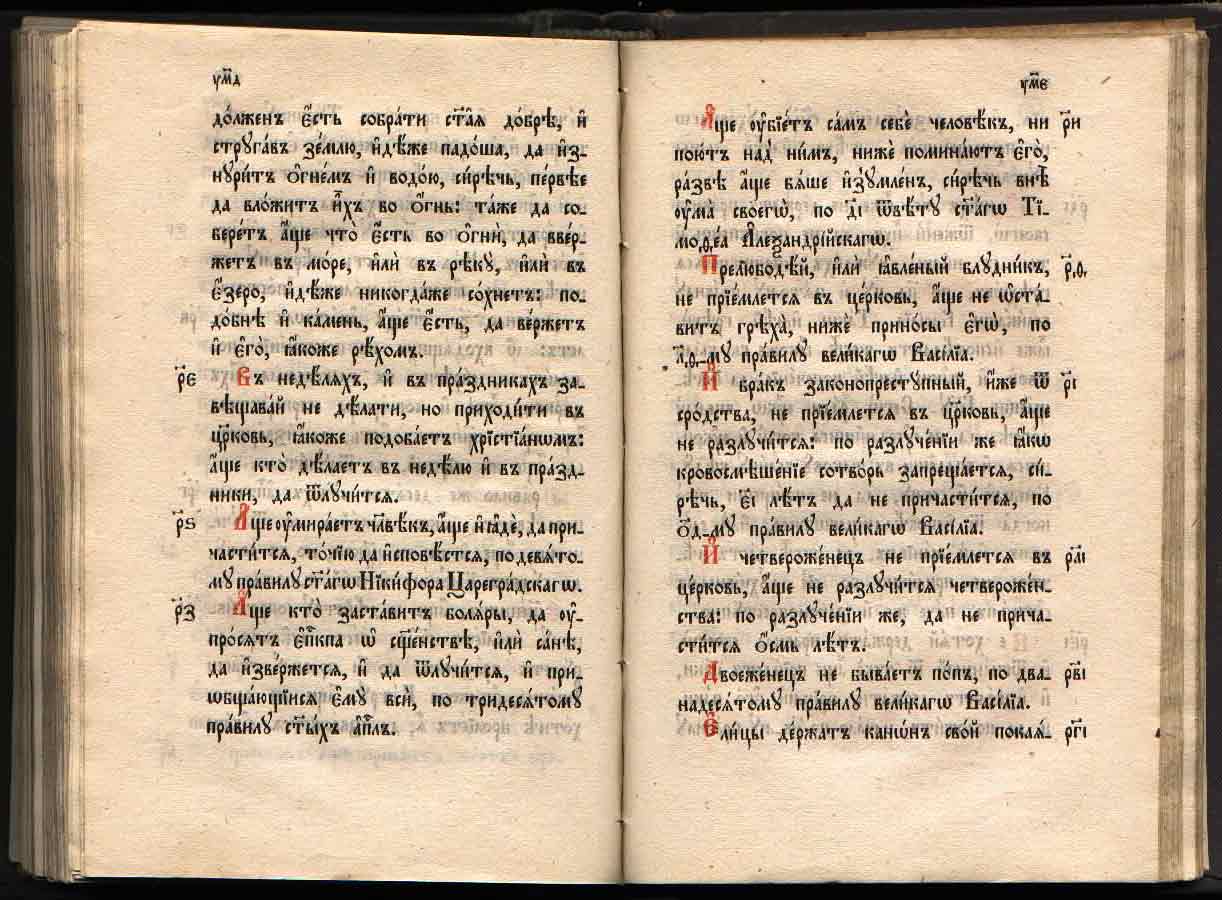 ум҃д
до́лженъ є҆́сть собра́ти ст҃а̑ѧ до́брѣ, и҆
стрꙋга́въ зе́млю, и҆дѣ́же падо́ша, да и҆з-
нꙋри́тъ ѻ҆гне́мъ и҆ водо́ю, си́рѣчь, пе́рвѣе
да вло́житъ и҆̀хъ во ѻ҆́гнь: та́же да со-
бере́тъ а҆́ще что̀ є҆́сть во ѻ҆гнѝ, да вве́р-
жетъ въ мо́ре, и҆лѝ въ рѣ́кꙋ, и҆лѝ въ
є҆́зеро, и҆дѣ́же никогда́же со́хнетъ: по-
до́бнѣ и҆ ка́мень, а҆́ще є҆́сть, да ве́ржетъ
и҆ є҆го̀, ꙗ҆́коже рѣ́хомъ.
р҃е Въ недѣ́лѧхъ, и҆ въ пра́здникахъ за-
вѣщава́й не дѣ́лати, но приходи́ти въ
цр҃ковь, ꙗ҆́коже подоба́етъ хрїстїа́нѡмъ:
а҆́ще кто̀ дѣ́лаетъ въ недѣ́лю и҆ въ пра́зд-
ники, да ѿлꙋчи́тсѧ.
р҃ѕ А҆́ще ᲂу҆мира́етъ чл҃вѣ́къ, а҆́ще и҆ ꙗ҆дѐ, да при-
части́тсѧ, то́чїю да и҆сповѣ́стсѧ, по девѧ́то-
мꙋ пра́вилꙋ ст҃а́гѡ Ники́фора Царегра́дскагѡ.
р҃з А҆́ще кто̀ заста́витъ болѧ́ры, да ᲂу҆-
про́сѧтъ є҆пⷭ҇кпа ѡ҆ сщ҃е́нствѣ, и҆лѝ са́нѣ,
да и҆зве́ржетсѧ, и҆ да ѿлꙋчи́тсѧ, и҆ при-
ѡбща́ющїисѧ є҆мꙋ̀ всѝ, по тридесѧ́томꙋ
пра́вилꙋ ст҃ы́хъ а҆пⷭ҇лъ.
ум҃е
А҆́ще ᲂу҆бїе́тъ са́мъ себѐ человѣ́къ, ни р҃и
пою́тъ над ни́мъ, нижѐ помина́ютъ є҆го̀,
ра́звѣ а҆́ще бѧ́ше и҆зꙋмле́нъ, си́рѣчь внѣ̀
ᲂу҆ма̀ своегѡ̀, по д҃і ѿвѣ́тꙋ ст҃а́гѡ Ті-
моѳе́а А҆леѯандрі́йскагѡ.
Прелюбодѣ́й, и҆лѝ ꙗ҆вле́ный блꙋдни́къ, р҃ѳ.
не прїе́млетсѧ въ це́рковь, а҆́ще не ѡ҆ста́-
витъ грѣха̀, нижѐ прино́сы є҆гѡ̀, по
л҃ѳ.-мꙋ пра́вилꙋ вели́кагѡ Васі́лїа.
И҆ бра́къ законопрестꙋ́пный, и҆́же ѿ р҃і
сро́дства, не прїе́млетсѧ въ цр҃ковь, а҆́ще
не разлꙋчи́тсѧ: по разлꙋче́нїи же ꙗ҆́кѡ
кровосмѣше́нїе сотво́рь запреща́етсѧ, си́-
рѣчь, є҃і лѣ́тъ да не причасти́тсѧ, по
ѻ҃д-мꙋ пра́вилꙋ вели́кагѡ Васі́лїа.
И҆ четвероже́нецъ не прїе́млетсѧ въ р҃аі
це́рковь, а҆́ще не разлꙋчи́тсѧ четвероже́н-
ства: по разлꙋче́нїи же, да не прича-
сти́тсѧ ѻ҆́смь лѣ́тъ.
Двоеже́нецъ не быва́етъ по́пъ, по два- р҃ві
надесѧ́томꙋ пра́вилꙋ вели́кагѡ Васі́лїа.
Є҆ли́цы держа́тъ канѡ́нъ сво́й покаѧ- р҃гі